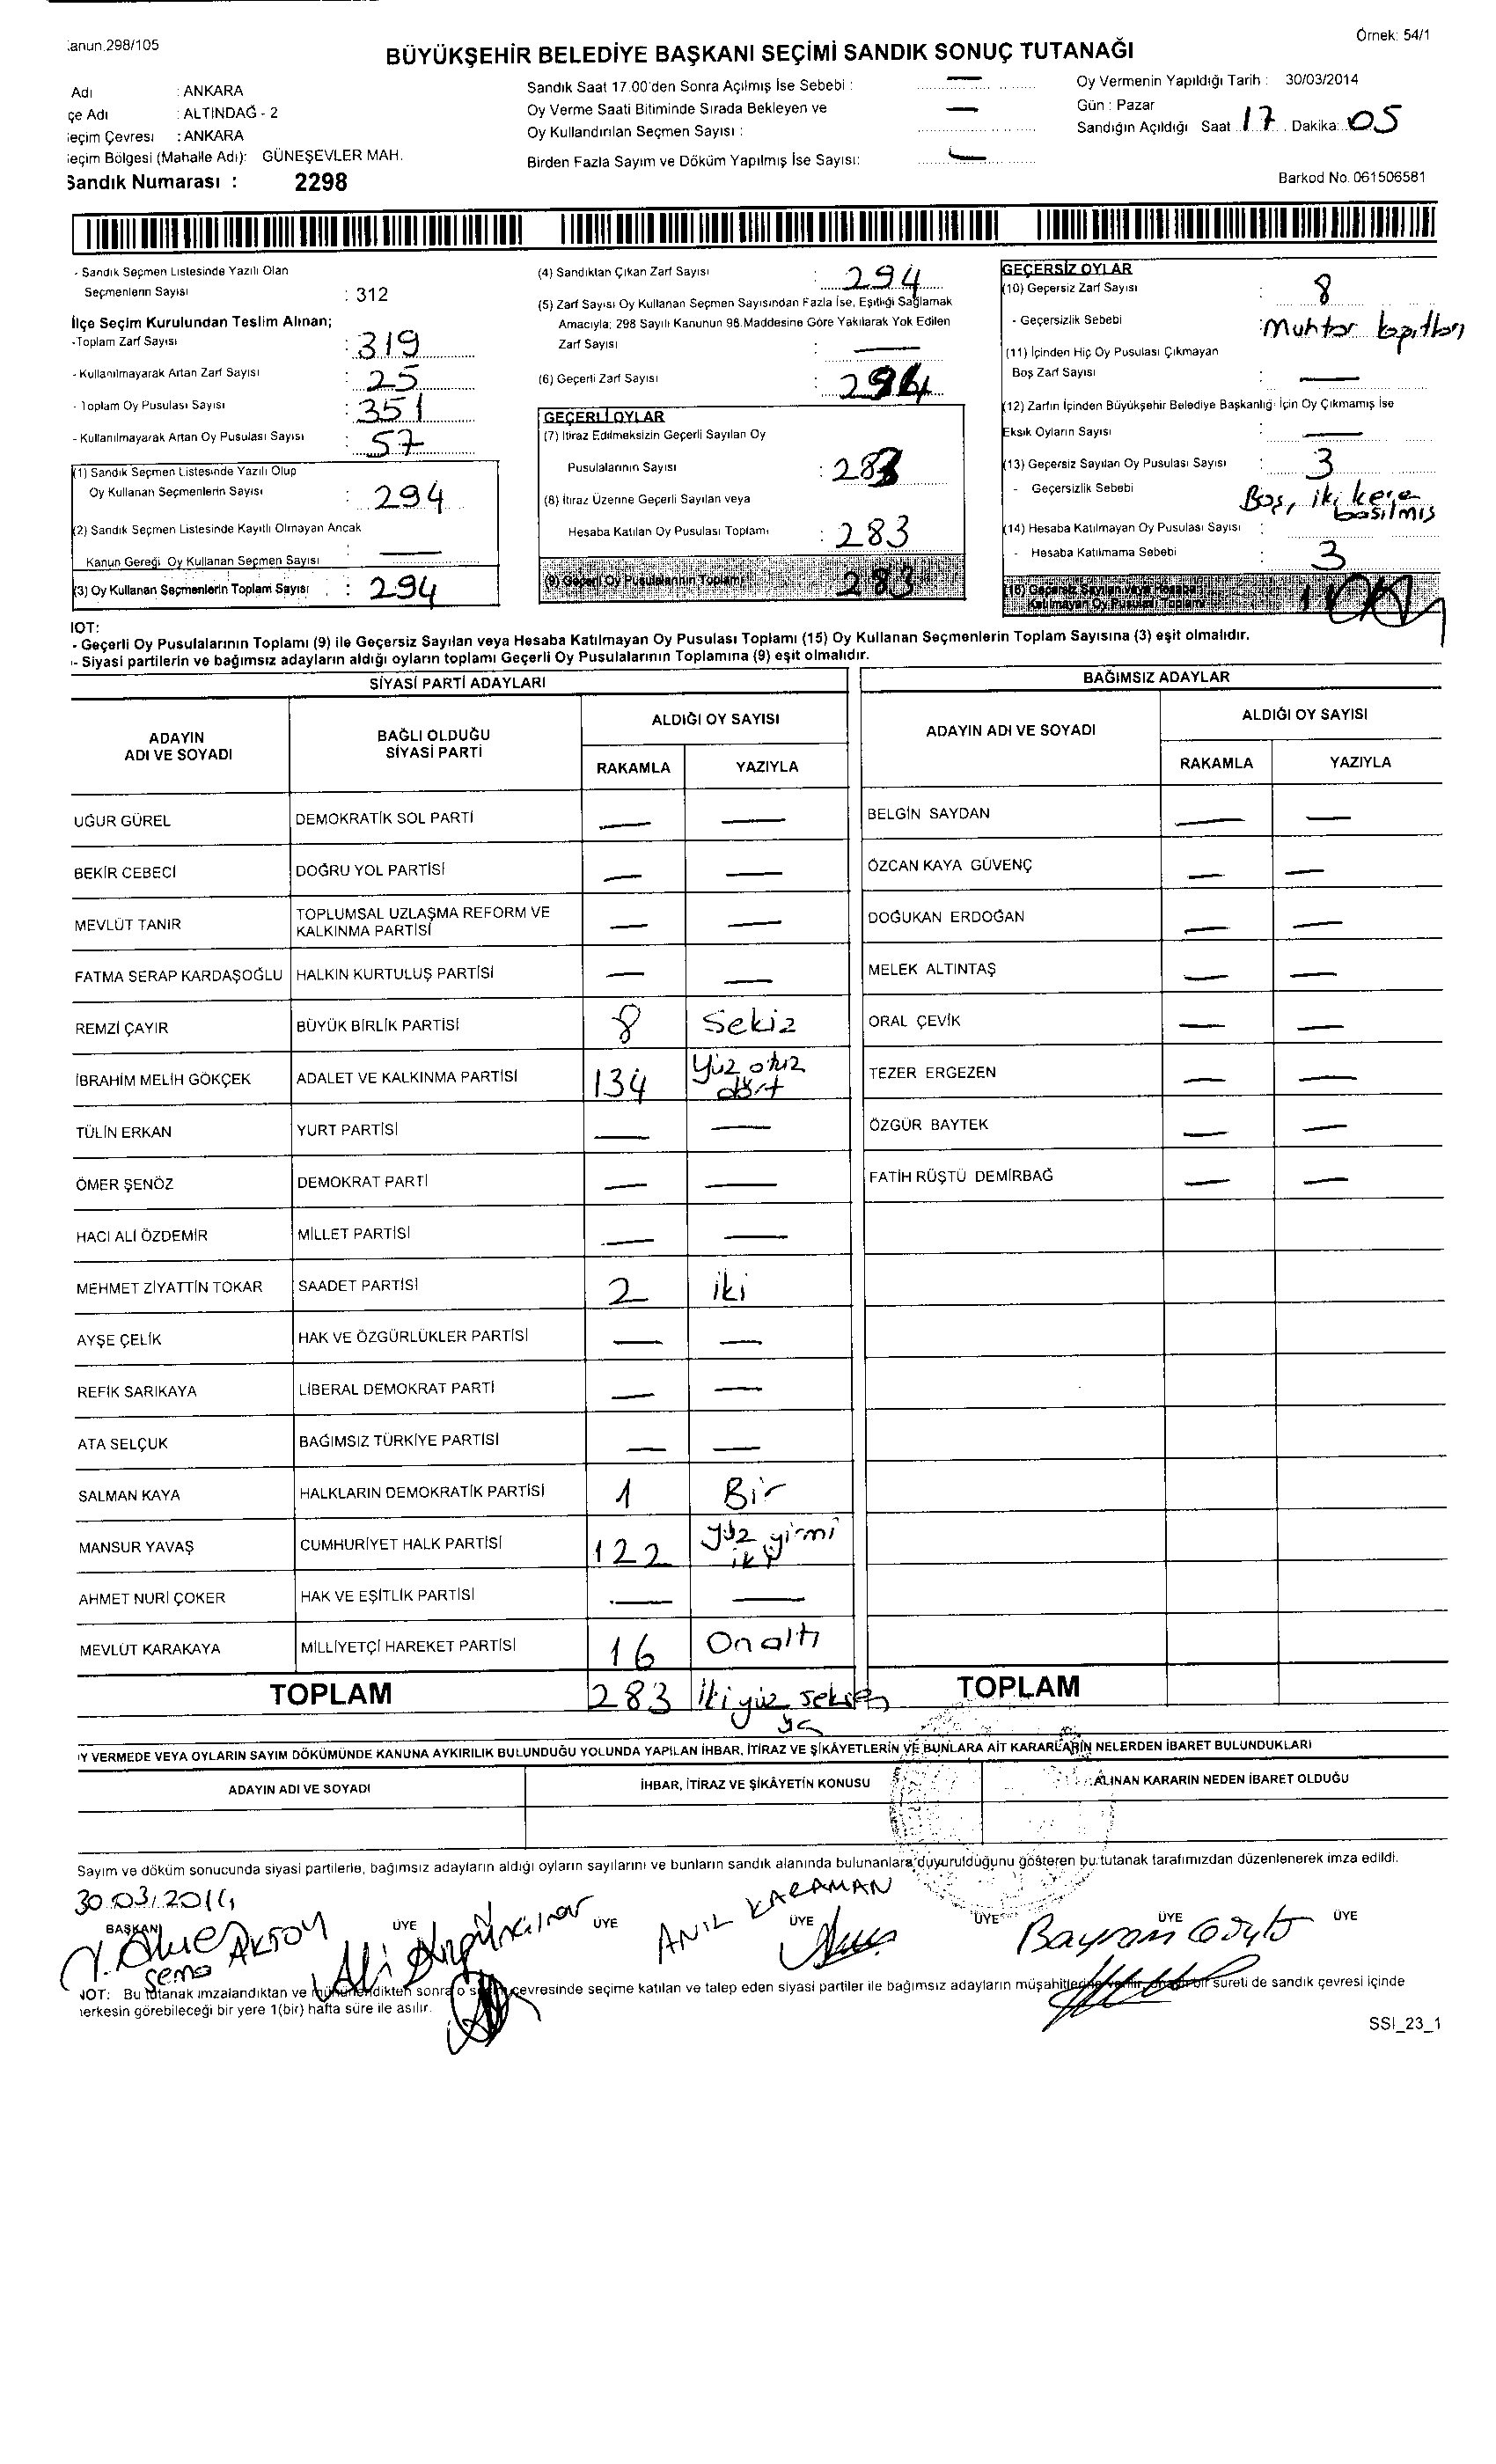 anun 298/105
Örnek: 54/1
BÜYÜKŞEHİR BELEDİYE BAŞKANI SEÇİMİ SANDIK SONUÇ TUTANAĞI
Adı : ANKARA
çe Adı : ALTINDAĞ - 2
eçim Çevresi : ANKARA
eçim Bölgesi (Mahalle Adı): GÜNEŞEVLER MAH.
Sandık Numarası : 2298
Sandık Saat 17.00'den Sonra Açılmış İse Sebebi : —
Oy Verme Saati Bitiminde Sırada Bekleyen ve
Oy Kullandırılan Seçmen Sayısı : —
Birden Fazla Sayım ve Döküm Yapılmış İse Sayısı: —
Oy Vermenin Yapıldığı Tarih : 30/03/2014
Gün : Pazar
Sandığın Açıldığı Saat 17 . Dakika: 05
Barkod No. 061506581
- Sandık Seçmen Listesinde Yazılı Olan
Seçmenlerin Sayısı : 312
İlçe Seçim Kurulundan Teslim Alınan;
-Toplam Zarf Sayısı : 319
- Kullanılmayarak Artan Zarf Sayısı : 25
- Toplam Oy Pusulası Sayısı : 351
- Kullanılmayarak Artan Oy Pusulası Sayısı : 57
(1) Sandık Seçmen Listesinde Yazılı Olup
Oy Kullanan Seçmenlerin Sayısı : 294
(2) Sandık Seçmen Listesinde Kayıtlı Olmayan Ancak
Kanun Gereği Oy Kullanan Seçmen Sayısı : —
(3) Oy Kullanan Seçmenlerin Toplam Sayısı : 294
(4) Sandıktan Çıkan Zarf Sayısı : 294
(5) Zarf Sayısı Oy Kullanan Seçmen Sayısından Fazla İse, Eşitliği Sağlamak
Amacıyla; 298 Sayılı Kanunun 98.Maddesine Göre Yakılarak Yok Edilen
Zarf Sayısı : —
(6) Geçerli Zarf Sayısı : 294
GEÇERLİ OYLAR
(7) İtiraz Edilmeksizin Geçerli Sayılan Oy
Pusulalarının Sayısı : 283
(8) İtiraz Üzerine Geçerli Sayılan veya
Hesaba Katılan Oy Pusulası Toplamı : 283
(9) Geçerli Oy Pusulalarının Toplamı 283
GEÇERSİZ OYLAR
(10) Geçersiz Zarf Sayısı : 8
- Geçersizlik Sebebi : Muhtar
(11) İçinden Hiç Oy Pusulası Çıkmayan
Boş Zarf Sayısı : —
(12) Zarfın İçinden Büyükşehir Belediye Başkanlığı İçin Oy Çıkmamış İse
Eksik Oyların Sayısı : —
(13) Geçersiz Sayılan Oy Pusulası Sayısı : 3
- Geçersizlik Sebebi Boş, iki kere
basılmış
(14) Hesaba Katılmayan Oy Pusulası Sayısı :
- Hesaba Katılmama Sebebi : 3
(15) Geçersiz Sayılan veya Hesaba
Katılmayan Oy Pusulası Toplamı
NOT:
- Geçerli Oy Pusulalarının Toplamı (9) ile Geçersiz Sayılan veya Hesaba Katılmayan Oy Pusulası Toplamı (15) Oy Kullanan Seçmenlerin Toplam Sayısına (3) eşit olmalıdır.
- Siyasi partilerin ve bağımsız adayların aldığı oyların toplamı Geçerli Oy Pusulalarının Toplamına (9) eşit olmalıdır.
SİYASİ PARTİ ADAYLARI
ADAYIN ADI VE SOYADI BAĞLI OLDUĞU SİYASİ PARTİ ALDIĞI OY SAYISI
RAKAMLA YAZIYLA
UĞUR GÜREL DEMOKRATİK SOL PARTİ — —
BEKİR CEBECİ DOĞRU YOL PARTİSİ — —
MEVLÜT TANIR TOPLUMSAL UZLAŞMA REFORM VE KALKINMA PARTİSİ — —
FATMA SERAP KARDAŞOĞLU HALKIN KURTULUŞ PARTİSİ — —
REMZİ ÇAYIR BÜYÜK BİRLİK PARTİSİ 8 Sekiz
İBRAHİM MELİH GÖKÇEK ADALET VE KALKINMA PARTİSİ 134 Yüz otuz dört
TÜLİN ERKAN YURT PARTİSİ — —
ÖMER ŞENÖZ DEMOKRAT PARTİ — —
HACI ALİ ÖZDEMİR MİLLET PARTİSİ — —
MEHMET ZİYATTİN TOKAR SAADET PARTİSİ 2 iki
AYŞE ÇELİK HAK VE ÖZGÜRLÜKLER PARTİSİ — —
REFİK SARIKAYA LİBERAL DEMOKRAT PARTİ — —
ATA SELÇUK BAĞIMSIZ TÜRKİYE PARTİSİ — —
SALMAN KAYA HALKLARIN DEMOKRATİK PARTİSİ 1 Bir
MANSUR YAVAŞ CUMHURİYET HALK PARTİSİ 122 yüz yirmi iki
AHMET NURİ ÇOKER HAK VE EŞİTLİK PARTİSİ — —
MEVLÜT KARAKAYA MİLLİYETÇİ HAREKET PARTİSİ 16 On altı
TOPLAM 283 İkiyüz seksen üç
BAĞIMSIZ ADAYLAR
ADAYIN ADI VE SOYADI ALDIĞI OY SAYISI
RAKAMLA YAZIYLA
BELGİN SAYDAN — —
ÖZCAN KAYA GÜVENÇ — —
DOĞUKAN ERDOĞAN — —
MELEK ALTINTAŞ — —
ORAL ÇEVİK — —
TEZER ERGEZEN — —
ÖZGÜR BAYTEK — —
FATİH RÜŞTÜ DEMİRBAĞ — —
TOPLAM
Y VERMEDE VEYA OYLARIN SAYIM DÖKÜMÜNDE KANUNA AYKIRILIK BULUNDUĞU YOLUNDA YAPILAN İHBAR, İTİRAZ VE ŞİKÂYETLERİN VE BUNLARA AİT KARARLARIN NELERDEN İBARET BULUNDUKLARI
ADAYIN ADI VE SOYADI İHBAR, İTİRAZ VE ŞİKÂYETİN KONUSU ALINAN KARARIN NEDEN İBARET OLDUĞU
Sayım ve döküm sonucunda siyasi partilerle, bağımsız adayların aldığı oyların sayılarını ve bunların sandık alanında bulunanlara duyurulduğunu gösteren bu tutanak tarafımızdan düzenlenerek imza edildi.
30.03.2014
BAŞKAN ÜYE ÜYE ÜYE ÜYE ÜYE ÜYE
AKSOY
Sema
Ali
ANIL KARAMAN
Bayram
NOT: Bu tutanak imzalandıktan ve mühürlendikten sonra o seçim çevresinde seçime katılan ve talep eden siyasi partiler ile bağımsız adayların müşahitlerine verilir, onaylı bir sureti de sandık çevresi içinde
herkesin görebileceği bir yere 1(bir) hafta süre ile asılır.
SSI_23_1